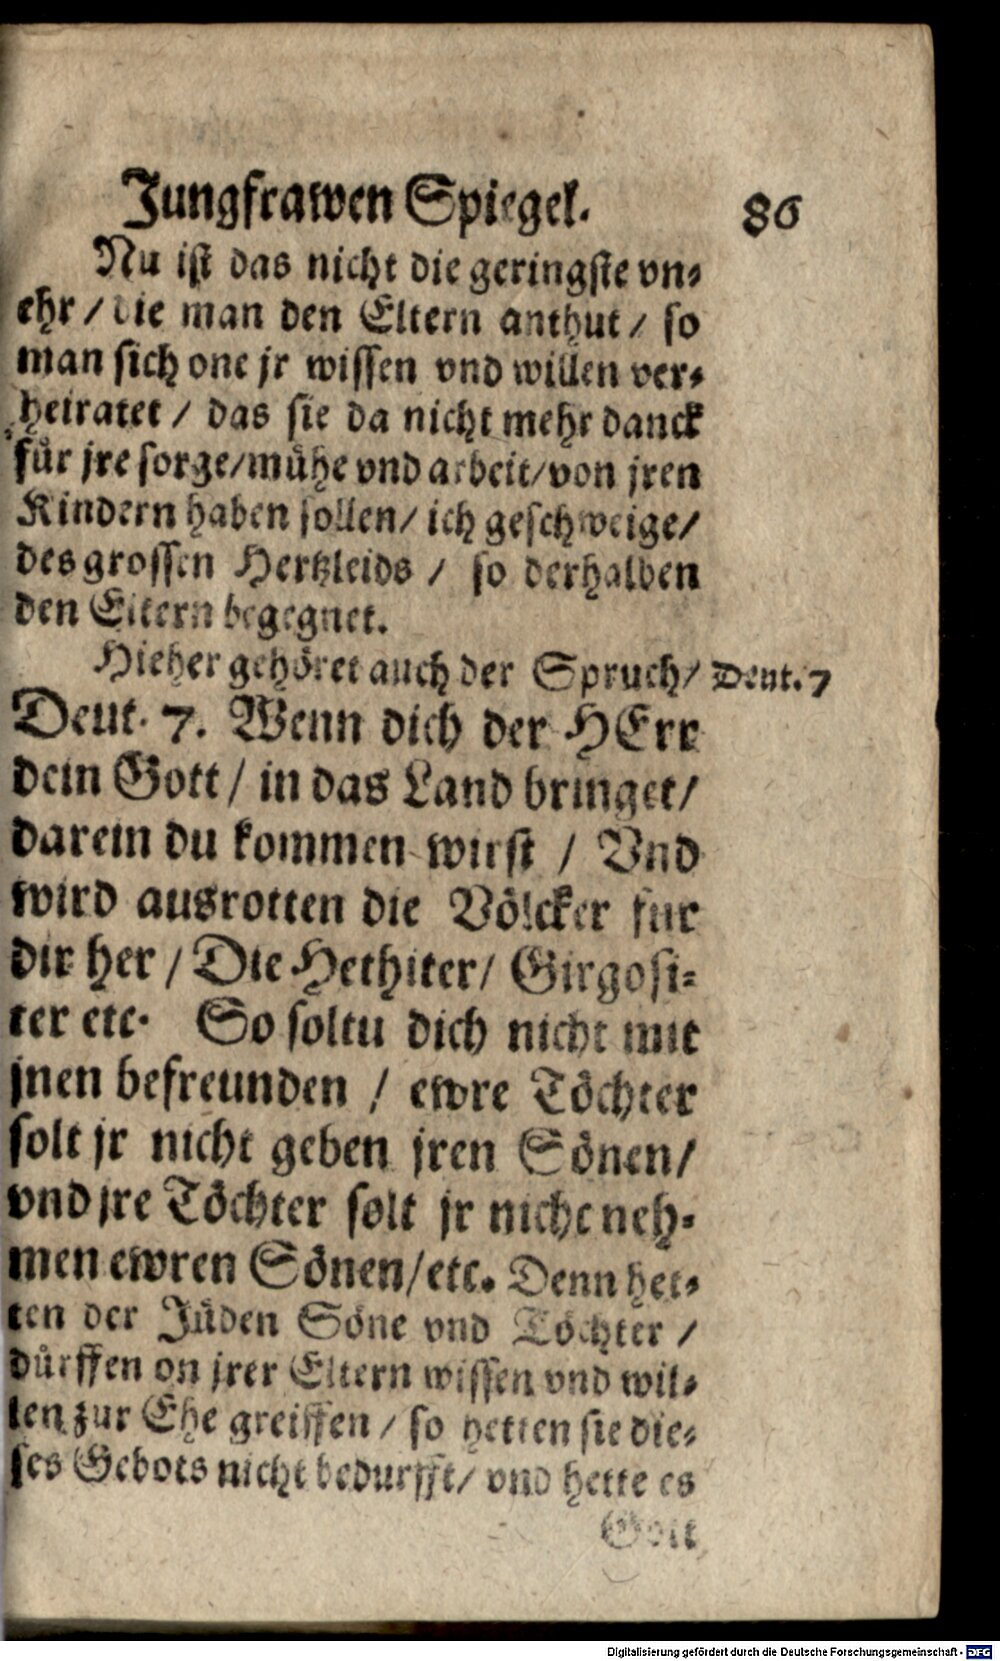 Jungfrawen Spiegel. 86
Nu ist das nicht die geringste vn⸗
ehr / die man den Eltern anthut / so
man sich one jr wissen vnd willen ver⸗
heiratet / das sie da nicht mehr danck
für jre sorge/mühe vnd arbeit/von jren
Kindern haben sollen/ ich geschweige/
des grossen Hertzleids / so derhalben
den Eltern begegnet.
Hieher gehöret auch der Spruch/ Deut. 7
Deut. 7. Wenn dich der HErr
dein Gott / in das Land bringet/
darein du kommen wirst / Vnd
wird ausrotten die Völcker für
dir her / Die Hethiter/ Girgosi⸗
ter etc. So soltu dich nicht mit
jnen befreunden / ewre Töchter
solt jr nicht geben jren Sönen/
vnd jre Töchter solt jr nicht neh⸗
men ewren Sönen/etc. Denn het⸗
ten der Jüden Söne vnd Töchter /
dürffen on jrer Eltern wissen vnd wil⸗
len zur Ehe greiffen / so hetten sie die⸗
ses Gebots nicht bedurfft/ vnd hette es
Gott
Digitalisierung gefördert durch die Deutsche Forschungsgemeinschaft - DFG